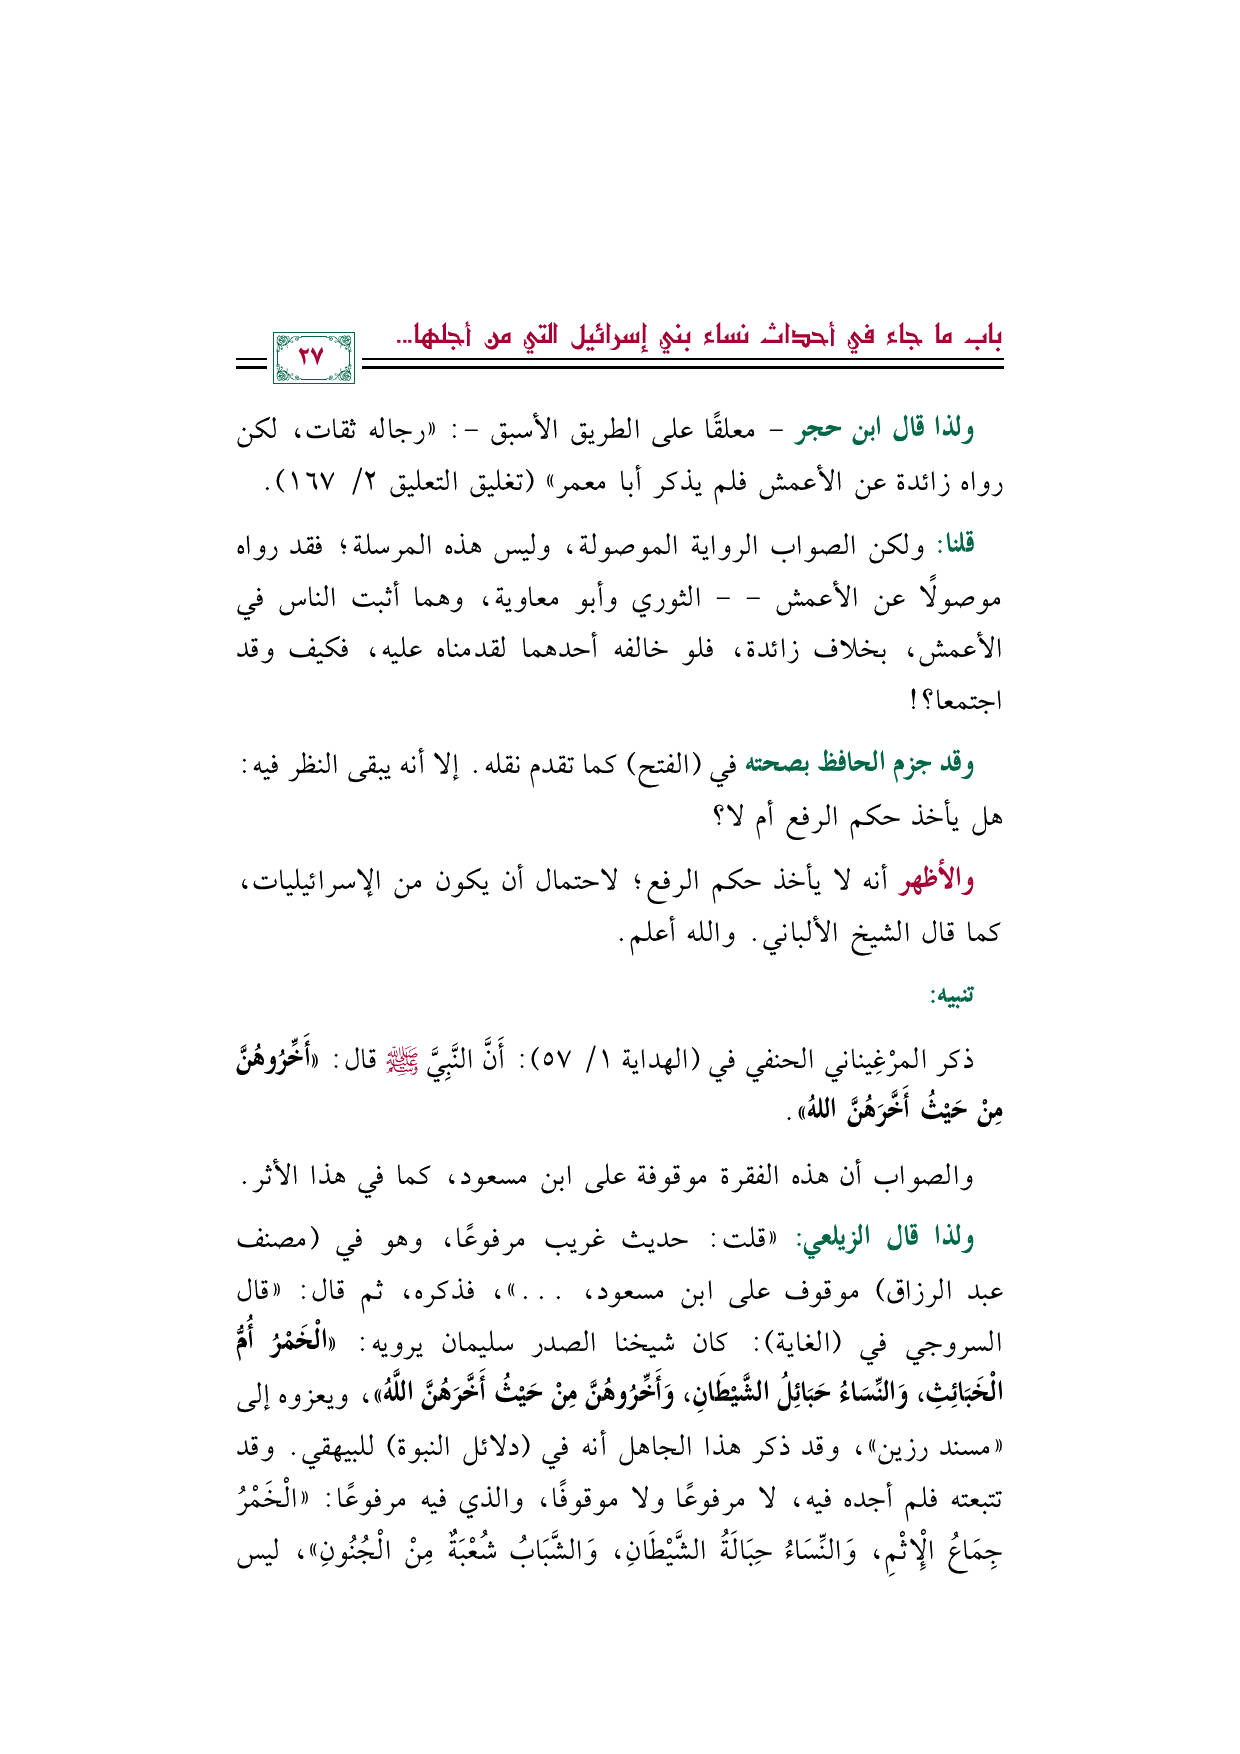 باب ما جاء في أحداث نساء بني إسرائيل التي من أجلها...
٢٧
ولذا قال ابن حجر – معلقًا على الطريق الأسبق –: «رجاله ثقات، لكن
رواه زائدة عن الأعمش فلم يذكر أبا معمر» (تغليق التعليق ٢/ ١٦٧).
قلنا: ولكن الصواب الرواية الموصولة، وليس هذه المرسلة؛ فقد رواه
موصولًا عن الأعمش – – الثوري وأبو معاوية، وهما أثبت الناس في
الأعمش، بخلاف زائدة، فلو خالفه أحدهما لقدمناه عليه، فكيف وقد
اجتمعا؟!
وقد جزم الحافظ بصحته في (الفتح) كما تقدم نقله. إلا أنه يبقى النظر فيه:
هل يأخذ حكم الرفع أم لا؟
والأظهر أنه لا يأخذ حكم الرفع؛ لاحتمال أن يكون من الإسرائيليات،
كما قال الشيخ الألباني. والله أعلم.
تنبيه:
ذكر المرْغِيناني الحنفي في (الهداية ١/ ٥٧): أَنَّ النَّبِيَّ ﷺ قال: «أَخِّرُوهُنَّ
مِنْ حَيْثُ أَخَّرَهُنَّ اللهُ».
والصواب أن هذه الفقرة موقوفة على ابن مسعود، كما في هذا الأثر.
ولذا قال الزيلعي: «قلت: حديث غريب مرفوعًا، وهو في (مصنف
عبد الرزاق) موقوف على ابن مسعود، ...»، فذكره، ثم قال: «قال
السروجي في (الغاية): كان شيخنا الصدر سليمان يرويه: «الْخَمْرُ أُمُّ
الْخَبَائِثِ، وَالنِّسَاءُ حَبَائِلُ الشَّيْطَانِ، وَأَخِّرُوهُنَّ مِنْ حَيْثُ أَخَّرَهُنَّ اللَّهُ»، ويعزوه إلى
«مسند رزين»، وقد ذكر هذا الجاهل أنه في (دلائل النبوة) للبيهقي. وقد
تتبعته فلم أجده فيه، لا مرفوعًا ولا موقوفًا، والذي فيه مرفوعًا: «الْخَمْرُ
جِمَاعُ الْإِثْمِ، وَالنِّسَاءُ حِبَالَةُ الشَّيْطَانِ، وَالشَّبَابُ شُعْبَةٌ مِنْ الْجُنُونِ»، ليس